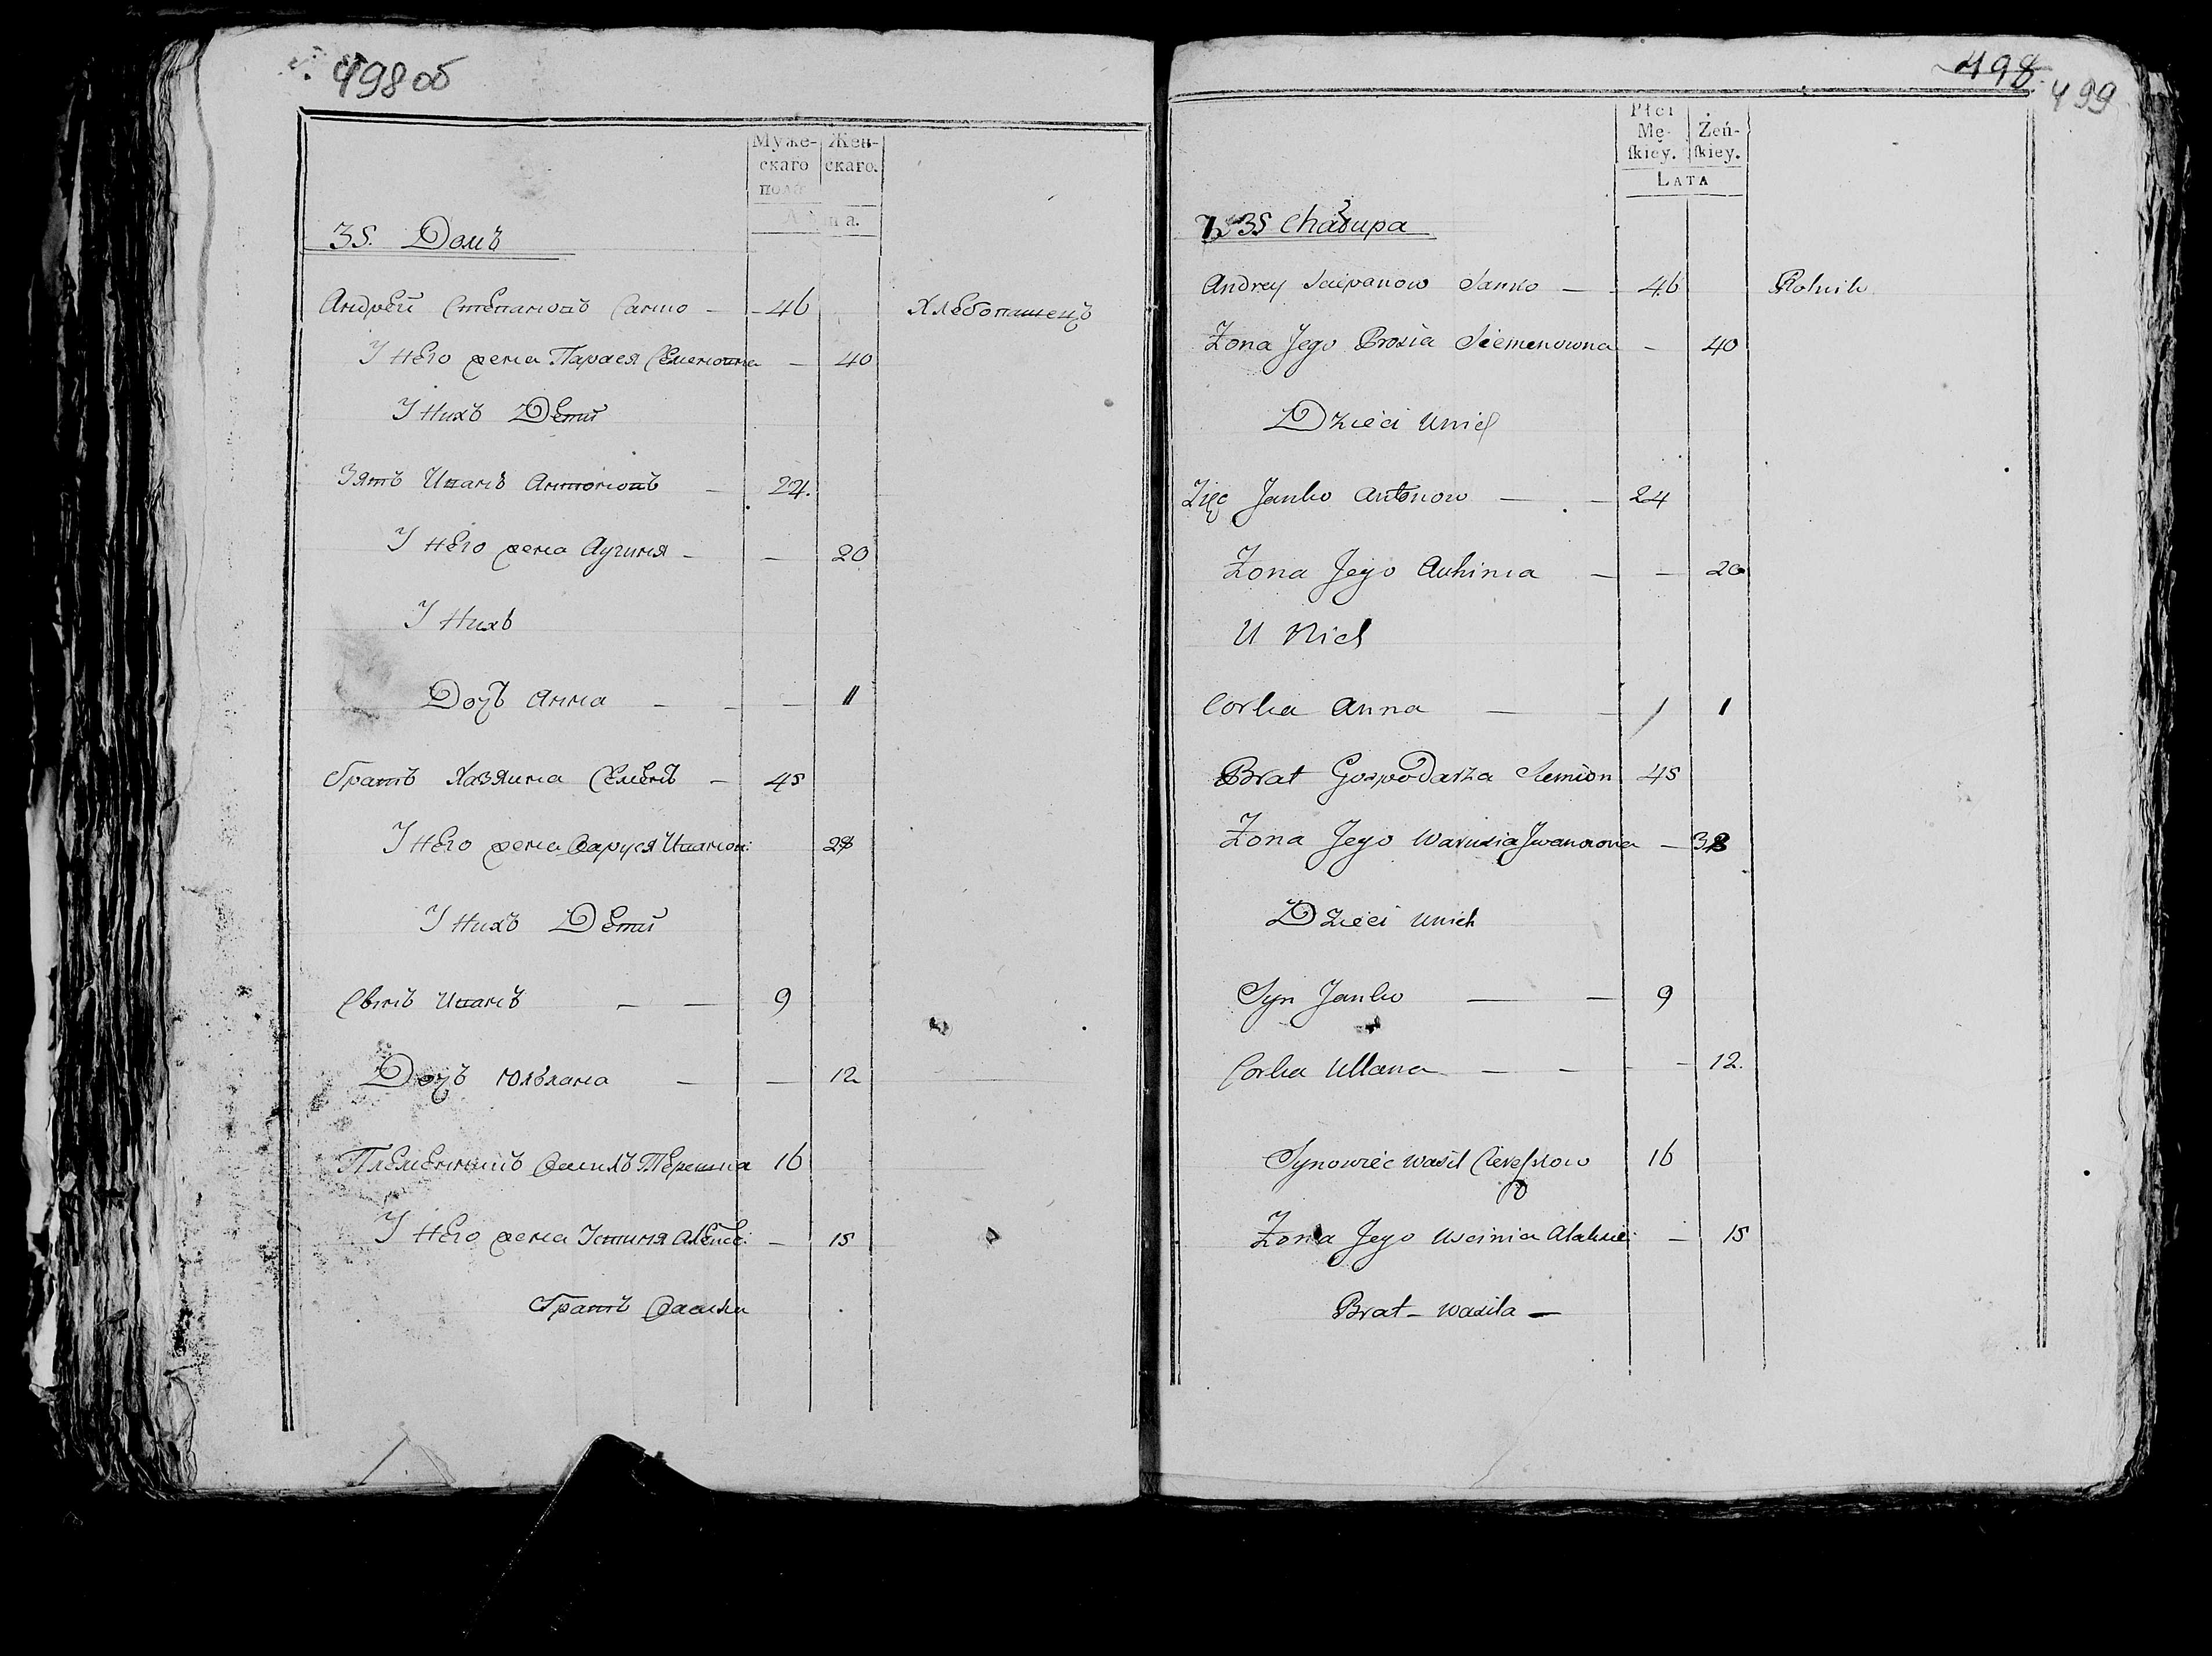 498 об
Муже-
скаго
пола
Жен-
скаго.
Лѣта.
35. Домъ
Андрей Степановъ Санко — 46 Хлебопашецъ
У Него жена Парася Семеновна — 40
У Нихъ Дети
Зять Иванъ Антоновъ — 24.
У Него жена Аугиня — — 20
У Нихъ
Дочь Анна — — — 1
Братъ Хозяина Семенъ — 45
У Него жена Варуся Иванов: 28
У Нихъ Дети
Сынъ Иванъ — — 9
Дочь Юльяна — — 12
Племенникъ Василь Терешка 16
У Него жена Устиня Алексе: — 15
Братъ Василя
498
499
Płci
Mę-
ſkiey.
Żeń-
ſkiey.
LATA
35 Chałupa
Andrey Sciepanow Sanko — 46 Rolnik
Zona Jego Prosia Siemenowna — 40
Dzieci unich
Zięc Janko Antonow — — 24
Zona Jego Auhinia — — 20
U Nich
Corka Anna — — 1
Brat Gospodarza Siemion 45
Zona Jego Warusia Jwanowna — 38
Dzieci unich
Syn Janko — — 9
Corka Ullana — — — 12.
Synowiec Wasil Cereszkow 16
Zona Jego Uscinia Alaksie: — 15
Brat — Wasila —